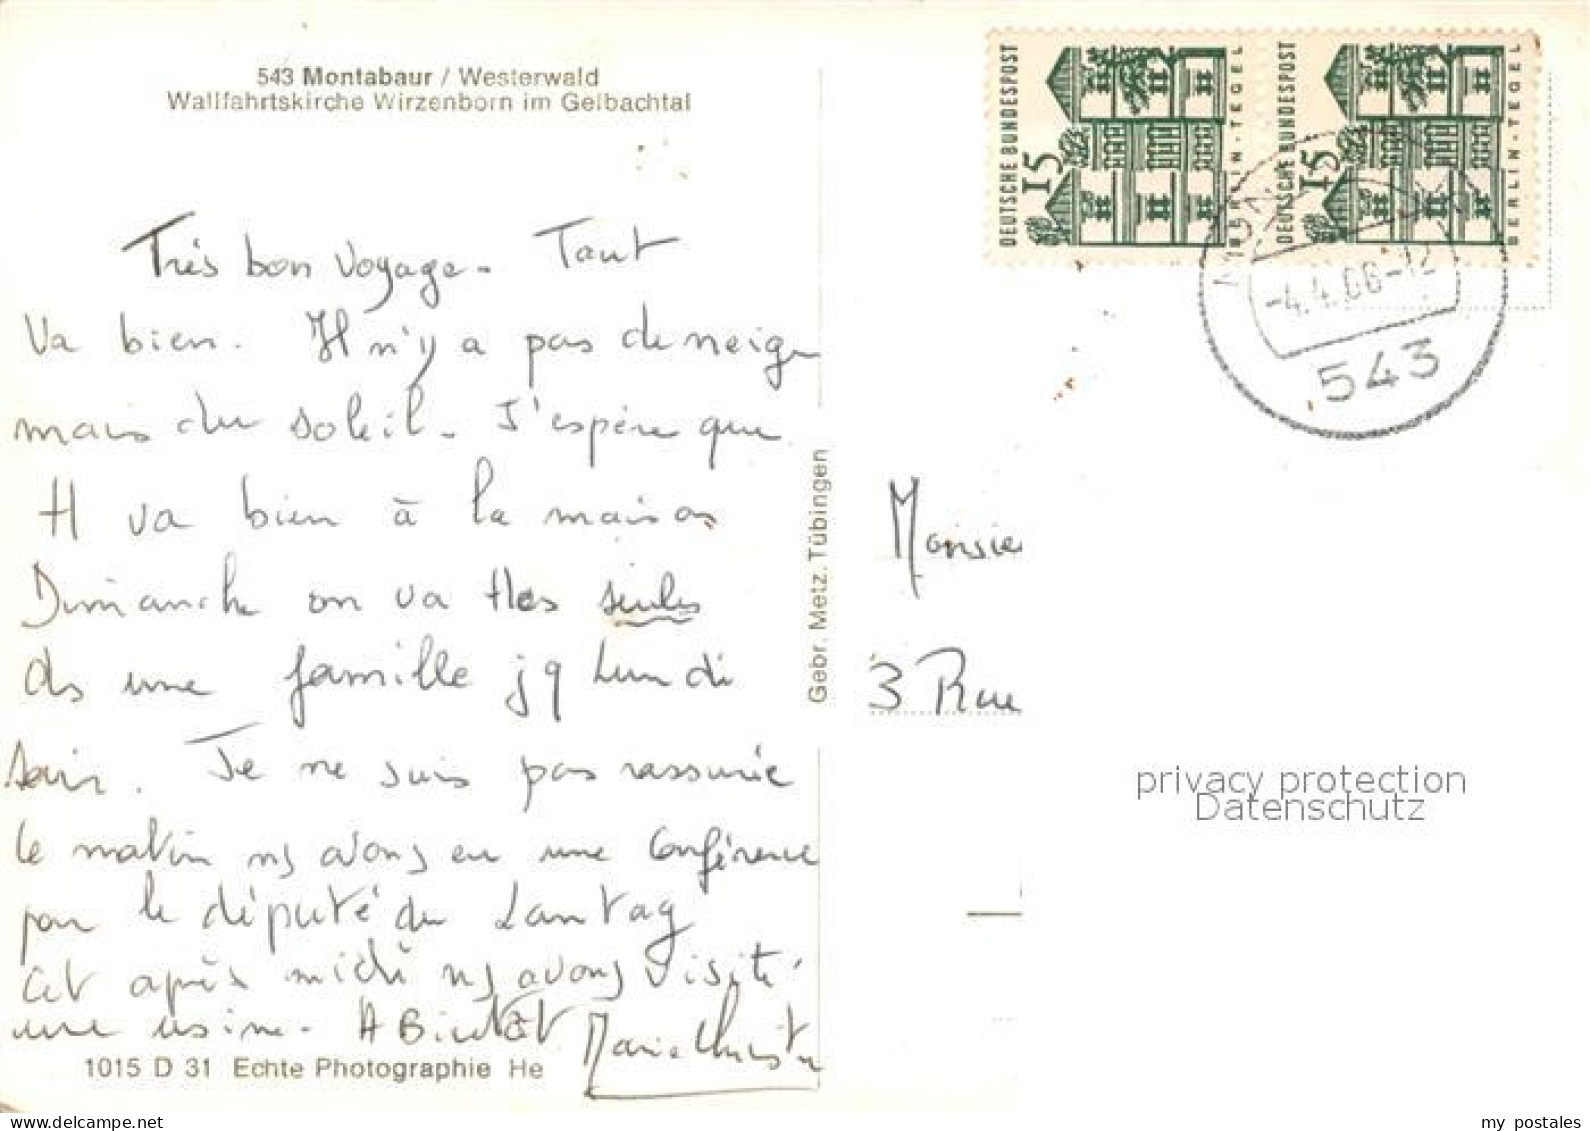 543 Montabaur / Westerwald
Wallfahrtskirche Wirzenborn im Gelbachtal
Très bon voyage - Tout
va bien. Il n'y a pas de neige
mais du soleil - J'espère que
tt va bien à la maison
Dimanche on va ttes seules
ds une famille jq Lundi
soir. Je ne suis pas rassurée
le matin ns avons eu une conférence
par le député du Lantag
et après midi ns avons visité
une usine - A Bientôt Marie Christine
1015 D 31 Echte Photographie He
Gebr. Metz, Tübingen
DEUTSCHE BUNDESPOST
15
BERLIN-TEGEL
DEUTSCHE BUNDESPOST
15
BERLIN-TEGEL
-4.4.66-12
543
Monsie
3 Rue
privacy protection
Datenschutz
my postales